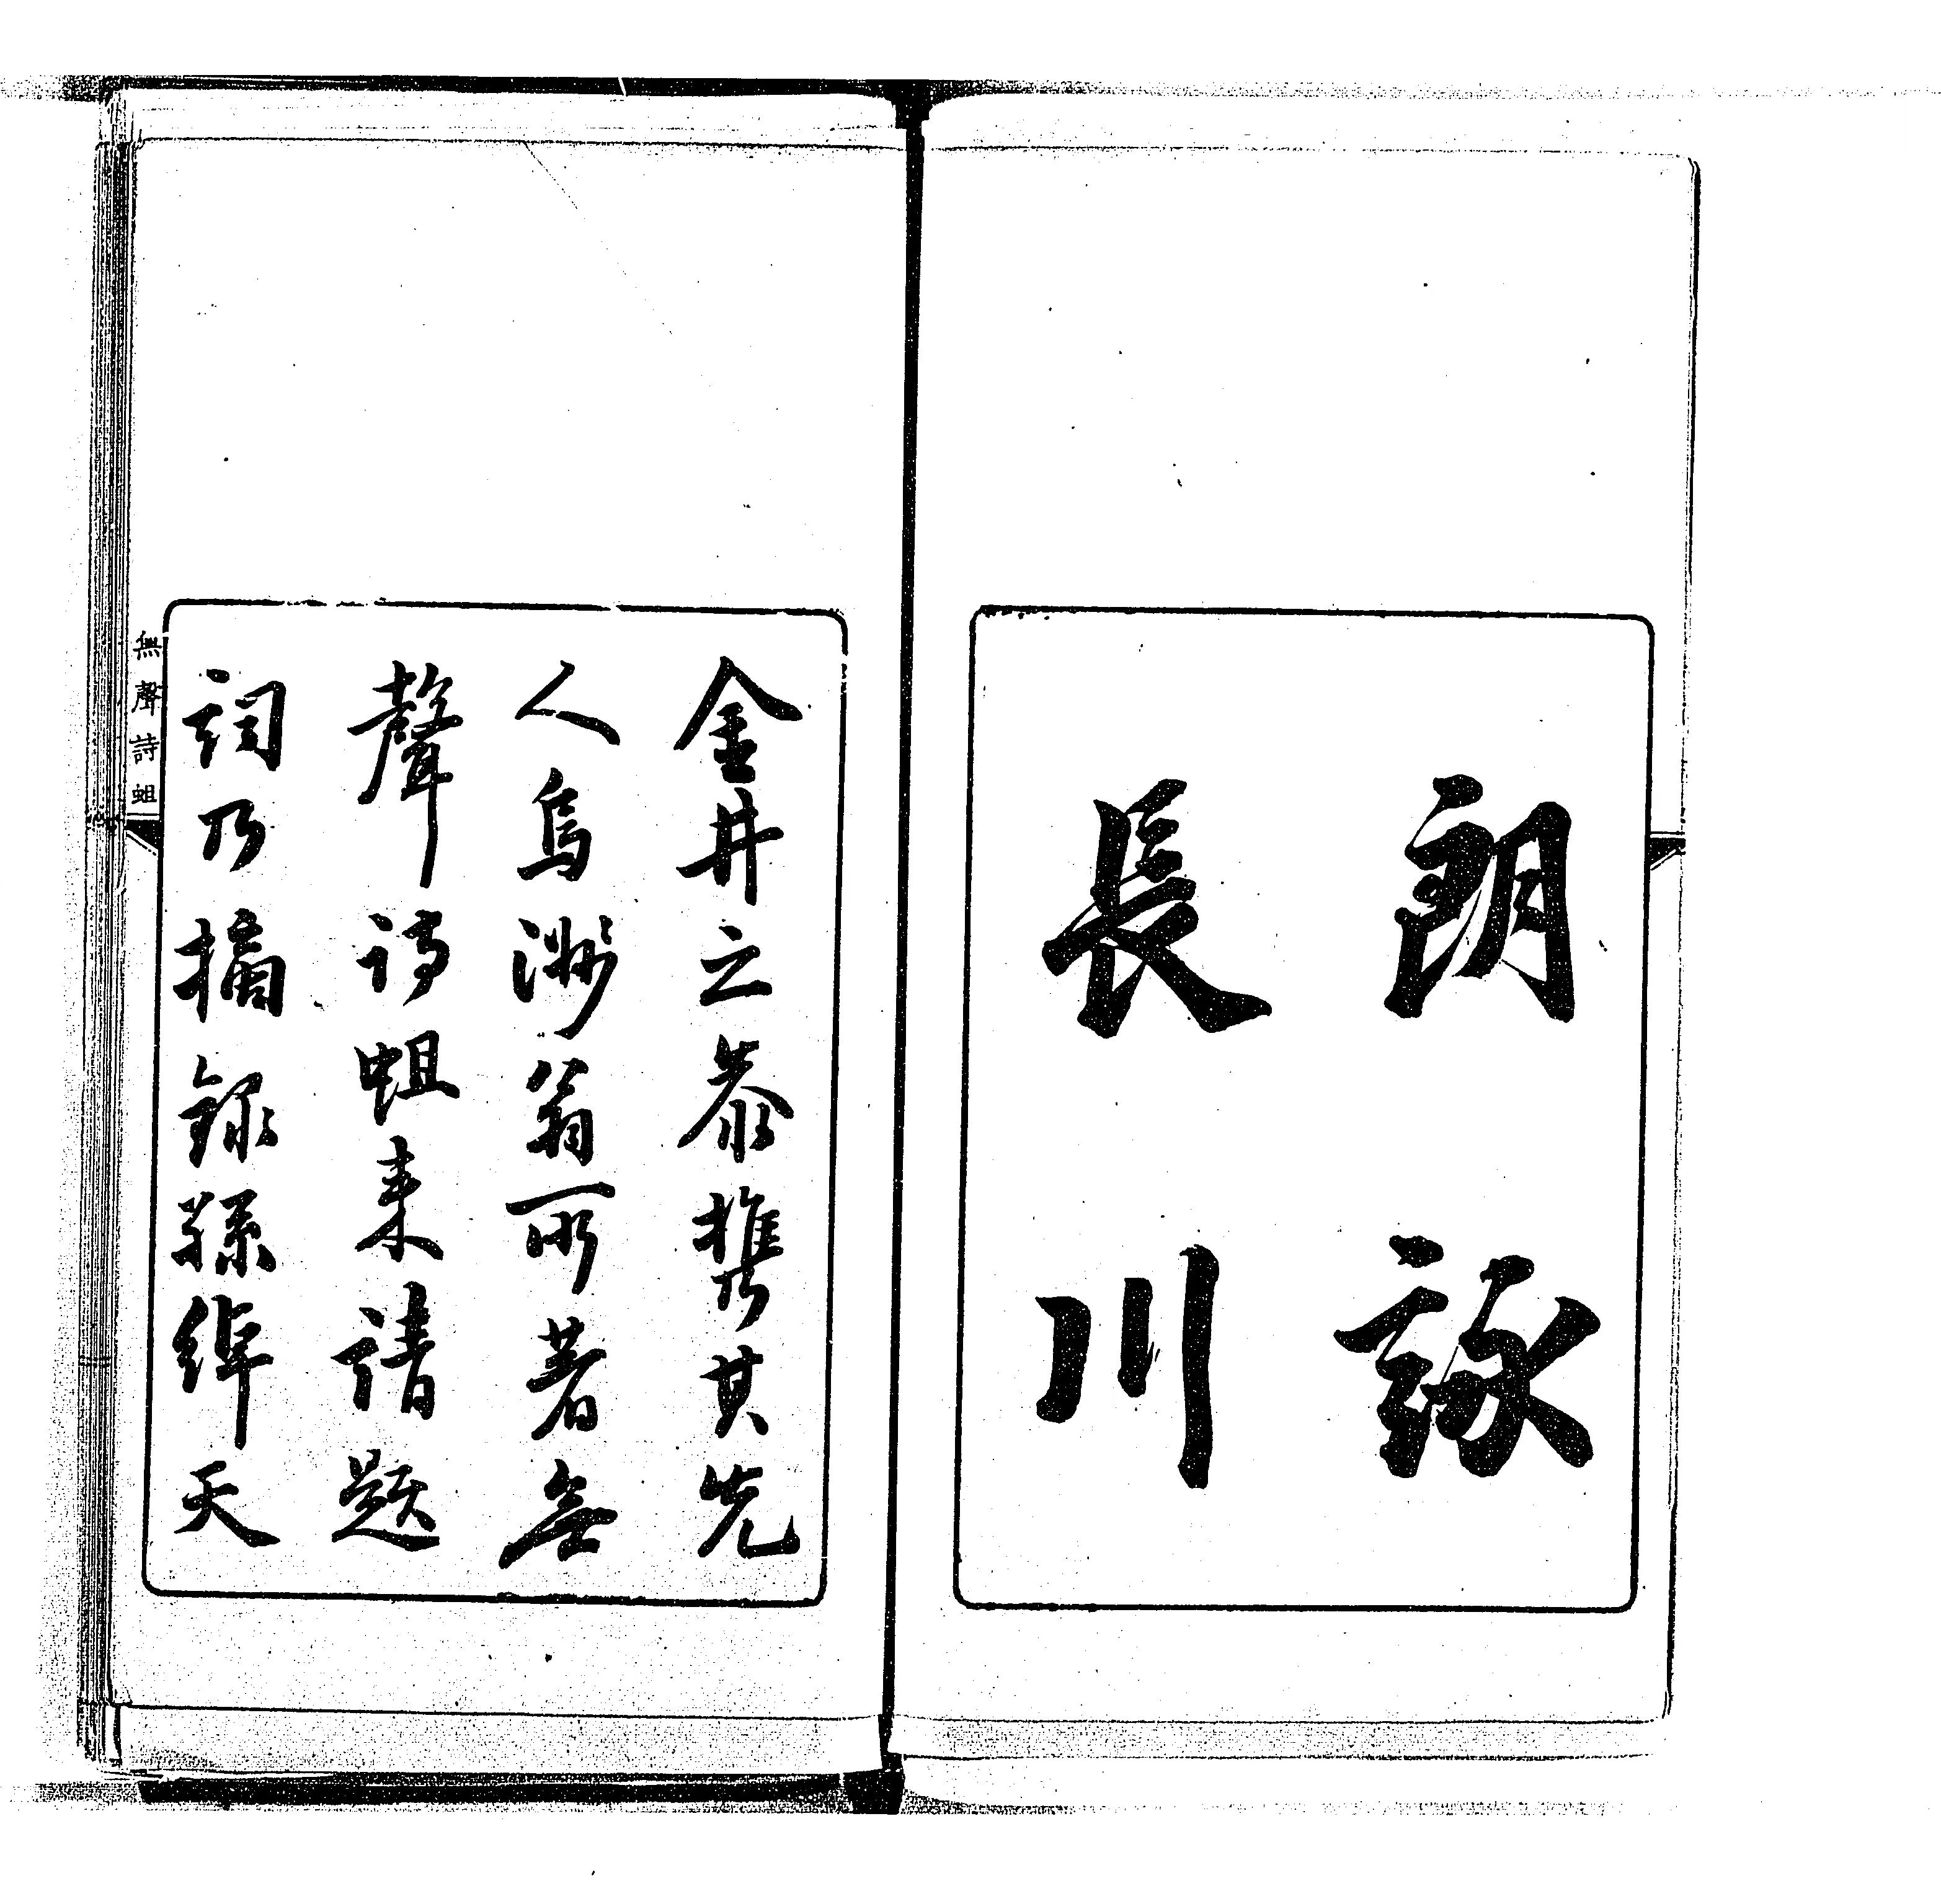 朗詠
長川
金井之恭携其先
人烏洲翁所著無
聲詩蛆来請題
詞乃摘錄孫綽天
無聲詩蛆